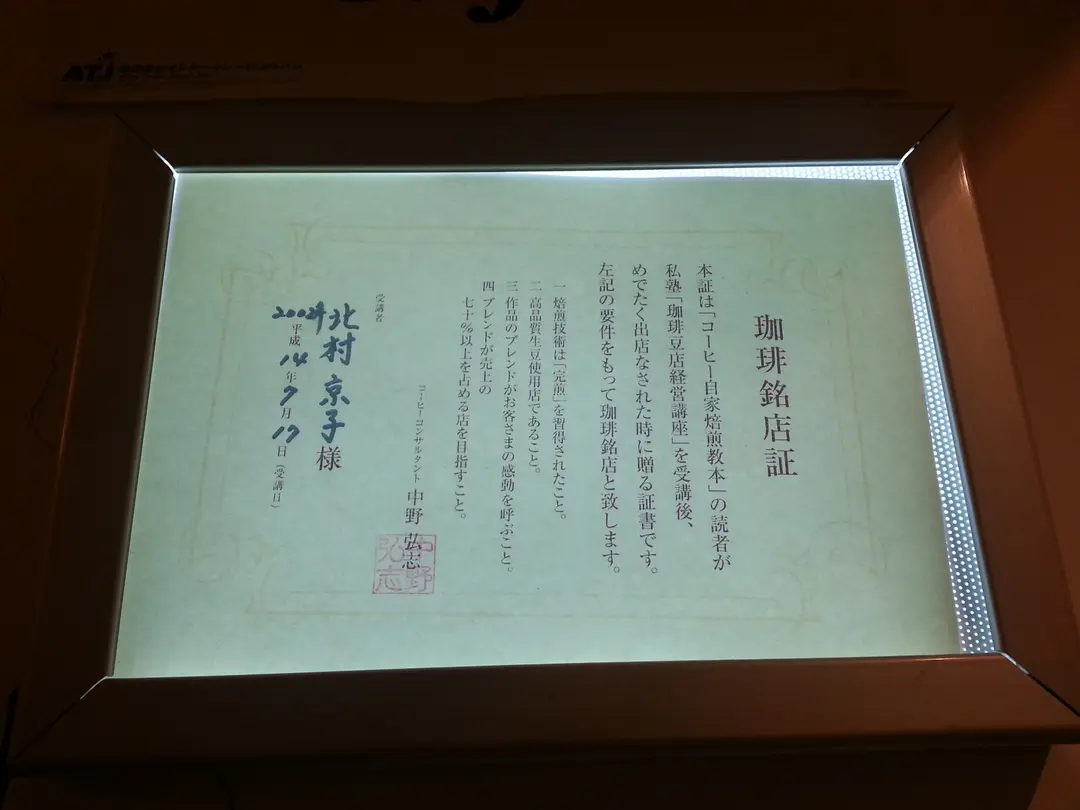 ATJ
珈琲銘店証
本証は「コーヒー自家焙煎教本」の読者が
私塾「珈琲豆店経営講座」を受講後、
めでたく出店なされた時に贈る証書です。
左記の要件をもって珈琲銘店と致します。
一 焙煎技術は「完煎」を習得されたこと。
二 高品質生豆使用店であること。
三 作品のブレンドがお客さまの感動を呼ぶこと。
四 ブレンドが売上の
七十%以上を占める店を目指すこと。
コーヒーコンサルタント 中野 弘志
中野弘志
受講者
北村 京子様
2002年
平成14年7月17日(受講日)